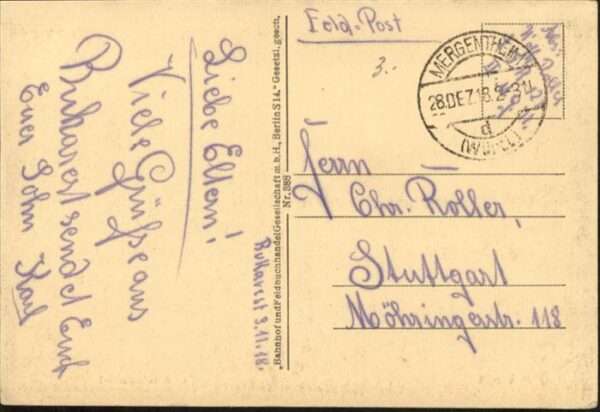 Liebe Eltern!
Viele Grüße aus
Bukarest sendet Euch
Euer Sohn Karl
Bukarest 3.11.18.
„Bahnhof und Feldbuchhandel Gesellschaft m. b. H., Berlin S 14.“ Gesetzl. gesch.
Nr. 388
Feld-Post
3.-
MERGENTHEIM
28.DEZ.18.
d
Herrn
Chr. Roller,
Stuttgart
Möhringerstr. 118